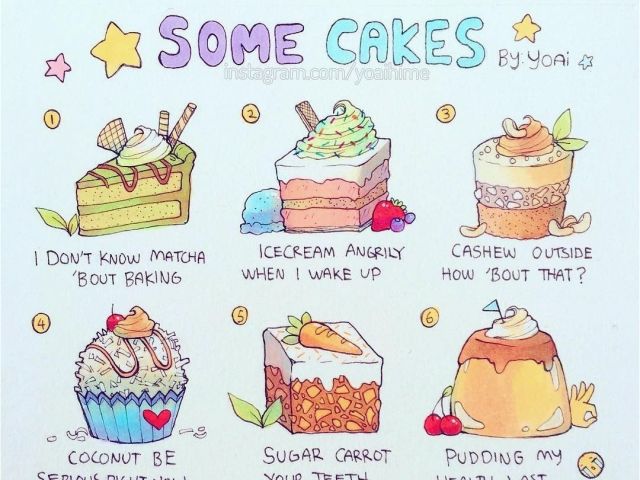 SOME CAKES
By: YOAi
instagram.com/yoaihime
1
I DON'T KNOW MATCHA
'BOUT BAKING
2
ICECREAM ANGRILY
WHEN I WAKE UP
3
CASHEW OUTSIDE
HOW 'BOUT THAT?
4
COCONUT BE
SERIOUS RIGHT NOW
5
SUGAR CARROT
YOUR TEETH
6
PUDDING MY
HEALTH LAST